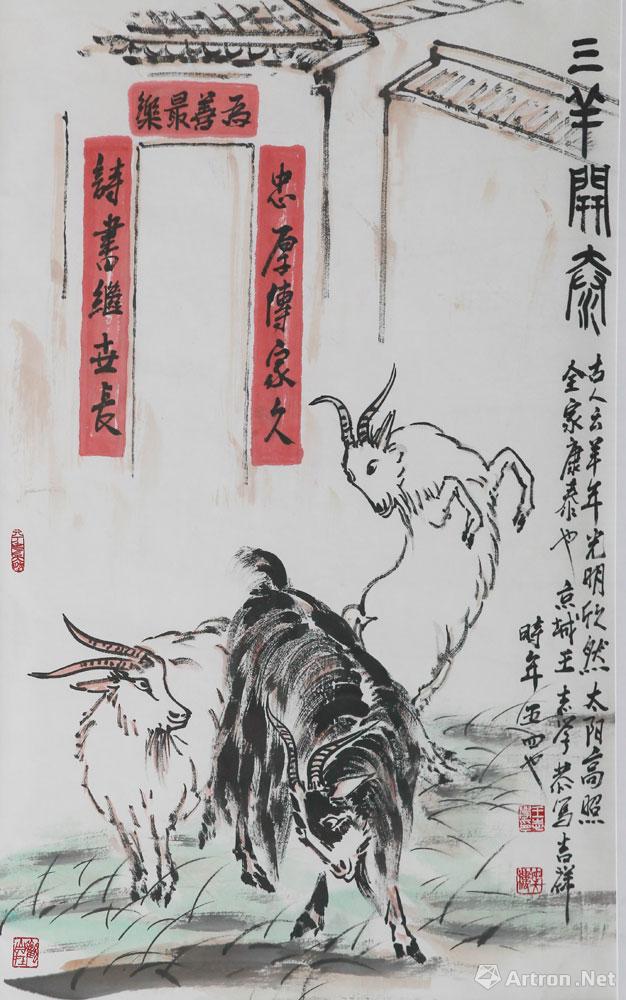 三羊開泰
古人云羊年光明欣然太阳高照
全家康泰也 京城王志恭写吉祥
時年五四也
為善最樂
忠厚傳家久
詩書繼世長
Artron.Net